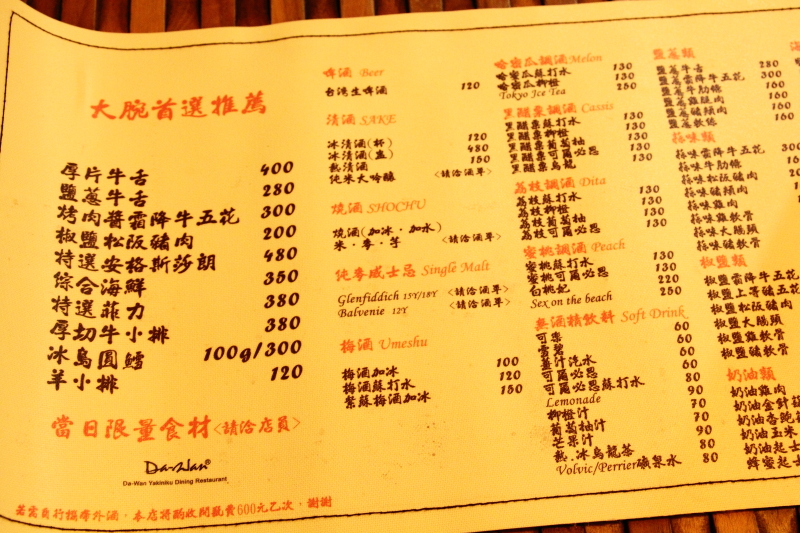 大腕首選推薦
厚片牛舌 400
鹽蔥牛舌 280
烤肉醬霜降牛五花 300
椒鹽松阪豬肉 200
特選安格斯莎朗 480
綜合海鮮 350
特選菲力 380
厚切牛小排 380
冰島圓鱈 100g/300
羊小排 120
當日限量食材<請洽店員>
Da-Wan®
Da-Wan Yakiniku Dining Restaurant
若需自行攜帶外酒，本店將酌收開瓶費600元乙次，謝謝
啤酒 Beer
台灣生啤酒 120
清酒 SAKE
冰清酒(杯) 120
冰清酒(壺) 480
熱清酒 150
純米大吟釀 <請洽酒單>
燒酒 SHOCHU
燒酒(加冰·加水)
米·麥·芋 <請洽酒單>
純麥威士忌 Single Malt
Glenfiddich 15Y/18Y <請洽酒單>
Balvenie 12Y <請洽酒單>
梅酒 Umeshu
梅酒加冰 100
梅酒蘇打水 120
紫蘇梅酒加冰 150
哈蜜瓜調酒 Melon
哈蜜瓜蘇打水 130
哈蜜瓜柳橙 130
Tokyo Ice Tea 250
黑醋栗調酒 Cassis
黑醋栗蘇打水 130
黑醋栗柳橙 130
黑醋栗葡萄柚 130
黑醋栗可爾必思 130
黑醋栗烏龍 130
荔枝調酒 Dita
荔枝蘇打水 130
荔枝柳橙 130
荔枝葡萄柚 130
荔枝可爾必思 130
蜜桃調酒 Peach
蜜桃蘇打水 130
蜜桃可爾必思 130
白桃妃 220
Sex on the beach 250
無酒精飲料 Soft Drink
可樂 60
雪碧 60
薑汁汽水 60
可爾必思 60
可爾必思蘇打水 80
Lemonade 90
柳橙汁 70
葡萄柚汁 70
芒果汁 90
熱.冰烏龍茶 80
Volvic/Perrier礦泉水 80
鹽蔥類
鹽蔥牛舌 280
鹽蔥霜降牛五花 300
鹽蔥牛肋條 160
鹽蔥雞腿肉 160
鹽蔥豬頰肉 160
鹽蔥軟絲
蒜味類
蒜味霜降牛五花 300
蒜味牛肋條
蒜味松阪豬肉
蒜味豬頰肉
蒜味雞肉
蒜味雞軟骨
蒜味大腸頭
蒜味豬軟骨
椒鹽類
椒鹽霜降牛五花
椒鹽上等豬五花
椒鹽松阪豬肉
椒鹽大腸頭
椒鹽雞軟骨
椒鹽豬軟骨
奶油類
奶油雞肉
奶油金針菇
奶油杏鮑菇
奶油玉米
奶油起士
蜂蜜起士